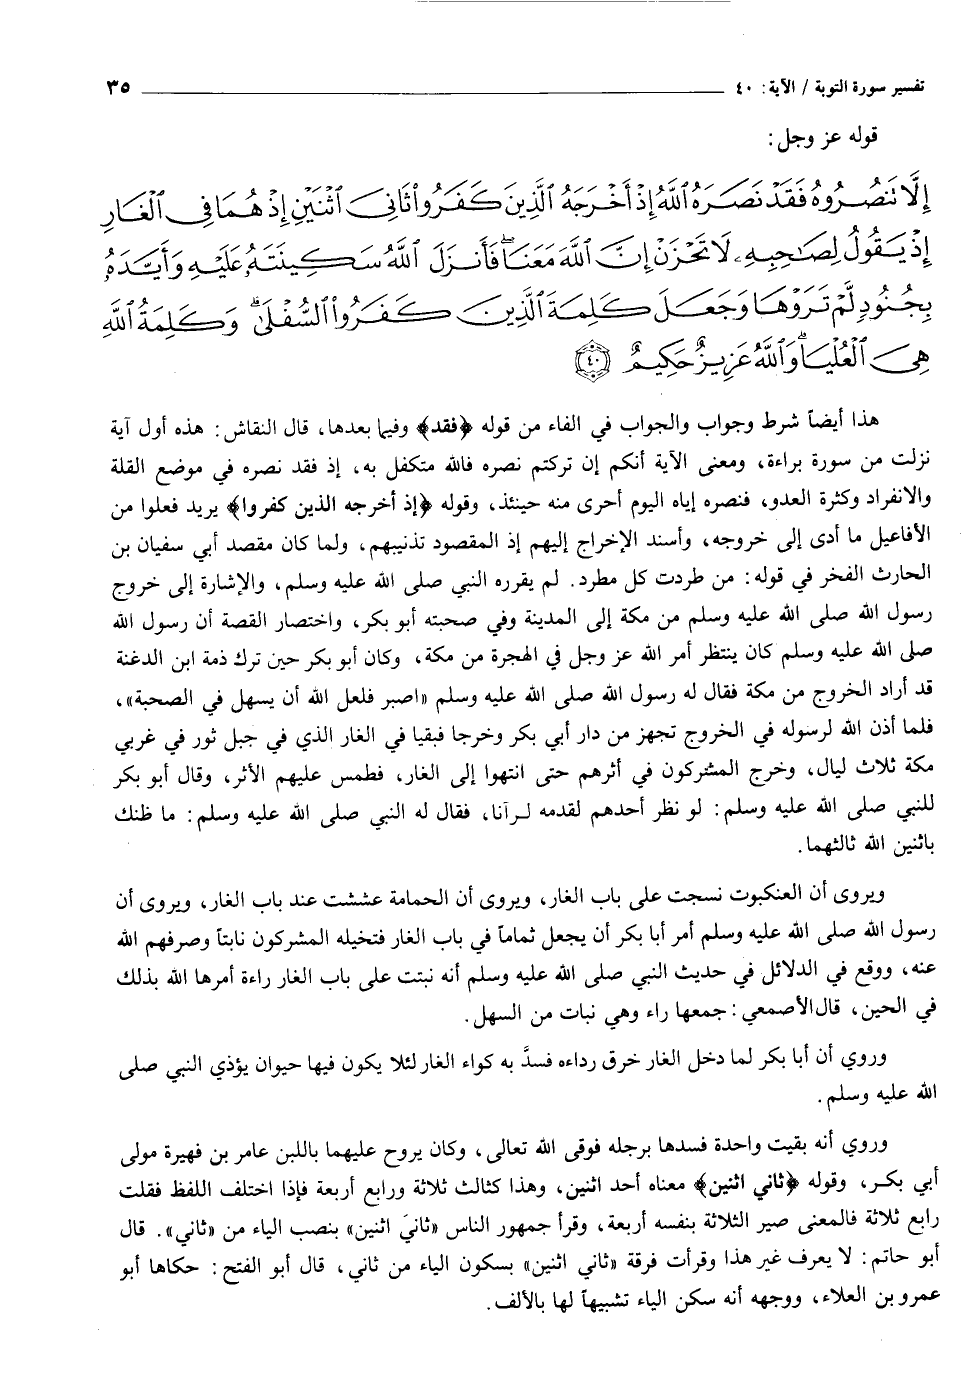 تفسير سورة التوبة / الآية: ٤٠ ٣٥
قوله عز وجل:
إِلَّا تَنصُرُوهُ فَقَدْ نَصَرَهُ اللَّهُ إِذْ أَخْرَجَهُ الَّذِينَ كَفَرُوا ثَانِيَ اثْنَيْنِ إِذْ هُمَا فِي الْغَارِ
إِذْ يَقُولُ لِصَاحِبِهِ لَا تَحْزَنْ إِنَّ اللَّهَ مَعَنَا فَأَنزَلَ اللَّهُ سَكِينَتَهُ عَلَيْهِ وَأَيَّدَهُ
بِجُنُودٍ لَّمْ تَرَوْهَا وَجَعَلَ كَلِمَةَ الَّذِينَ كَفَرُوا السُّفْلَىٰ وَكَلِمَةُ اللَّهِ
هِيَ الْعُلْيَا وَاللَّهُ عَزِيزٌ حَكِيمٌ ٤٠
هذا أيضاً شرط وجواب والجواب في الفاء من قوله ﴿فقد﴾ وفيما بعدها، قال النقاش: هذه أول آية
نزلت من سورة براءة، ومعنى الآية أنكم إن تركتم نصره فالله متكفل به، إذ فقد نصره في موضع القلة
والانفراد وكثرة العدو، فنصره إياه اليوم أحرى منه حينئذ، وقوله ﴿إذ أخرجه الذين كفروا﴾ يريد فعلوا من
الأفاعيل ما أدى إلى خروجه، وأسند الإخراج إليهم إذ المقصود تذنيبهم، ولما كان مقصد أبي سفيان بن
الحارث الفخر في قوله: من طردت كل مطرد. لم يقرره النبي صلى الله عليه وسلم، والإشارة إلى خروج
رسول الله صلى الله عليه وسلم من مكة إلى المدينة وفي صحبته أبو بكر، واختصار القصة أن رسول الله
صلى الله عليه وسلم كان ينتظر أمر الله عز وجل في الهجرة من مكة، وكان أبو بكر حين ترك ذمة ابن الدغنة
قد أراد الخروج من مكة فقال له رسول الله صلى الله عليه وسلم «اصبر فلعل الله أن يسهل في الصحبة»،
فلما أذن الله لرسوله في الخروج تجهز من دار أبي بكر وخرجا فبقيا في الغار الذي في جبل ثور في غربي
مكة ثلاث ليال، وخرج المشركون في أثرهم حتى انتهوا إلى الغار، فطمس عليهم الأثر، وقال أبو بكر
للنبي صلى الله عليه وسلم: لو نظر أحدهم لقدمه لرآنا، فقال له النبي صلى الله عليه وسلم: ما ظنك
باثنين الله ثالثهما.
ويروى أن العنكبوت نسجت على باب الغار، ويروى أن الحمامة عششت عند باب الغار، ويروى أن
رسول الله صلى الله عليه وسلم أمر أبا بكر أن يجعل ثماماً في باب الغار فتخيله المشركون نابتاً وصرفهم الله
عنه، ووقع في الدلائل في حديث النبي صلى الله عليه وسلم أنه نبتت على باب الغار راءة أمرها الله بذلك
في الحين، قال الأصمعي: جمعها راء وهي نبات من السهل.
وروي أن أبا بكر لما دخل الغار خرق رداءه فسدَّ به كواء الغار لئلا يكون فيها حيوان يؤذي النبي صلى
الله عليه وسلم.
وروي أنه بقيت واحدة فسدها برجله فوقى الله تعالى، وكان يروح عليهما باللبن عامر بن فهيرة مولى
أبي بكر، وقوله ﴿ثاني اثنين﴾ معناه أحد اثنين، وهذا كثالث ثلاثة ورابع أربعة فإذا اختلف اللفظ فقلت
رابع ثلاثة فالمعنى صير الثلاثة بنفسه أربعة، وقرأ جمهور الناس «ثانيَ اثنين» بنصب الياء من «ثاني». قال
أبو حاتم: لا يعرف غير هذا وقرأت فرقة «ثاني اثنين» بسكون الياء من ثاني، قال أبو الفتح: حكاها أبو
عمرو بن العلاء، ووجهه أنه سكن الياء تشبيهاً لها بالألف.